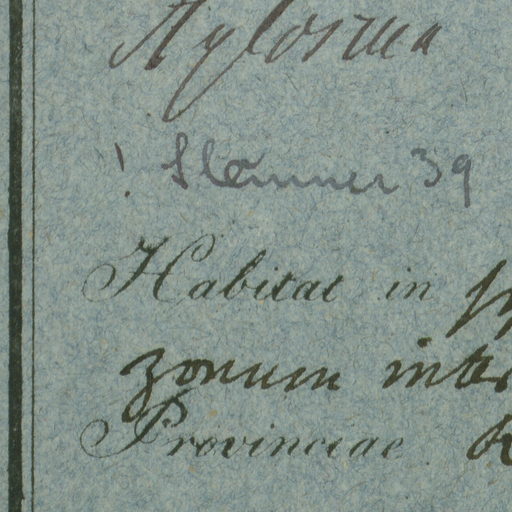 Xylosma
! Sleumer 39
Habitat in
zonum inter
Provinciae